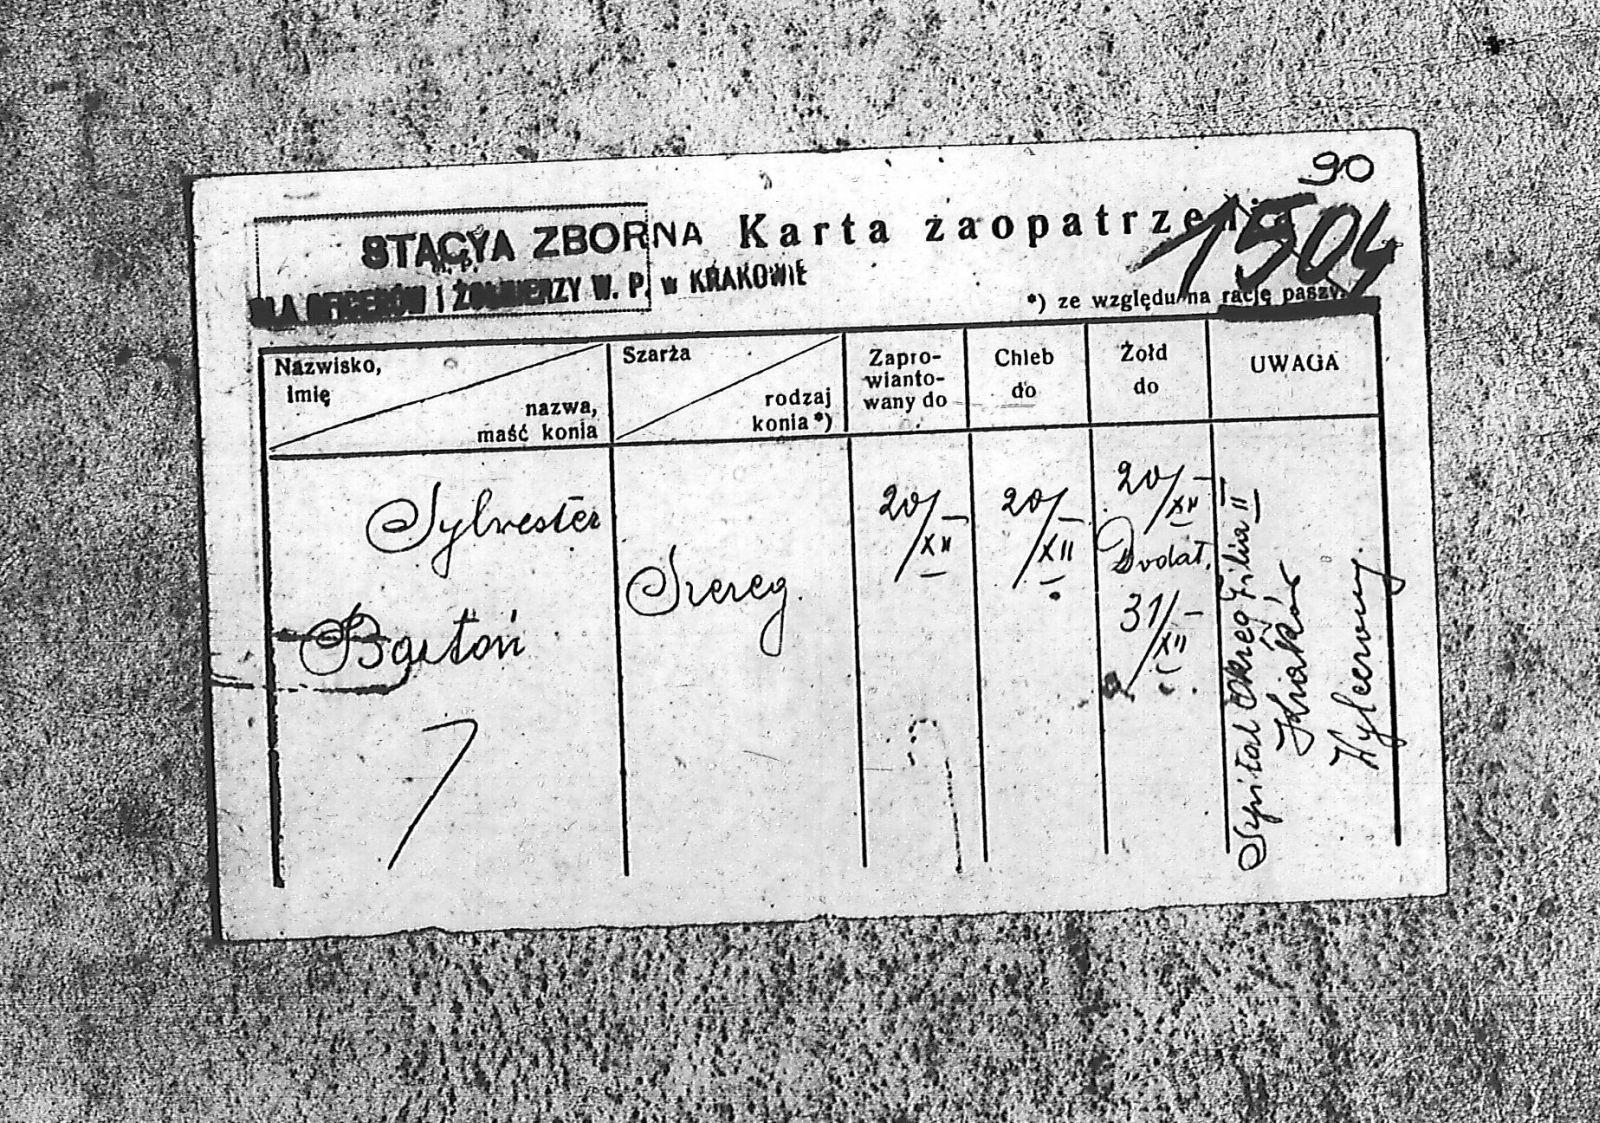 90
STACYA ZBORNA
DLA OFICERÓW I ŻOŁNIERZY W. P. w KRAKOWIE
Karta zaopatrzenia
1504
*) ze względu na rację paszy.
Nazwisko,
imię
nazwa,
maść konia
Szarża
rodzaj
konia *)
Zapro-
wianto-
wany do
Chleb
do
Żołd
do
UWAGA
Sylwester
Bartoń
Szereg.
20/XII
20/XII
20/XII
Dodat.
31/XII
Szpital Okręg Filia II
Kraków
Wyleczony